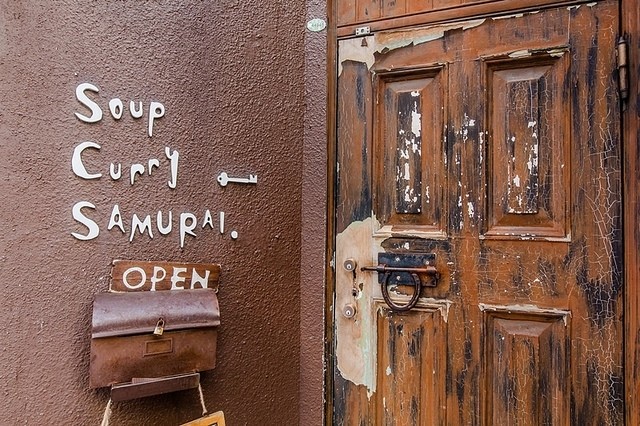 Soup
Curry
SAMURAI.
OPEN